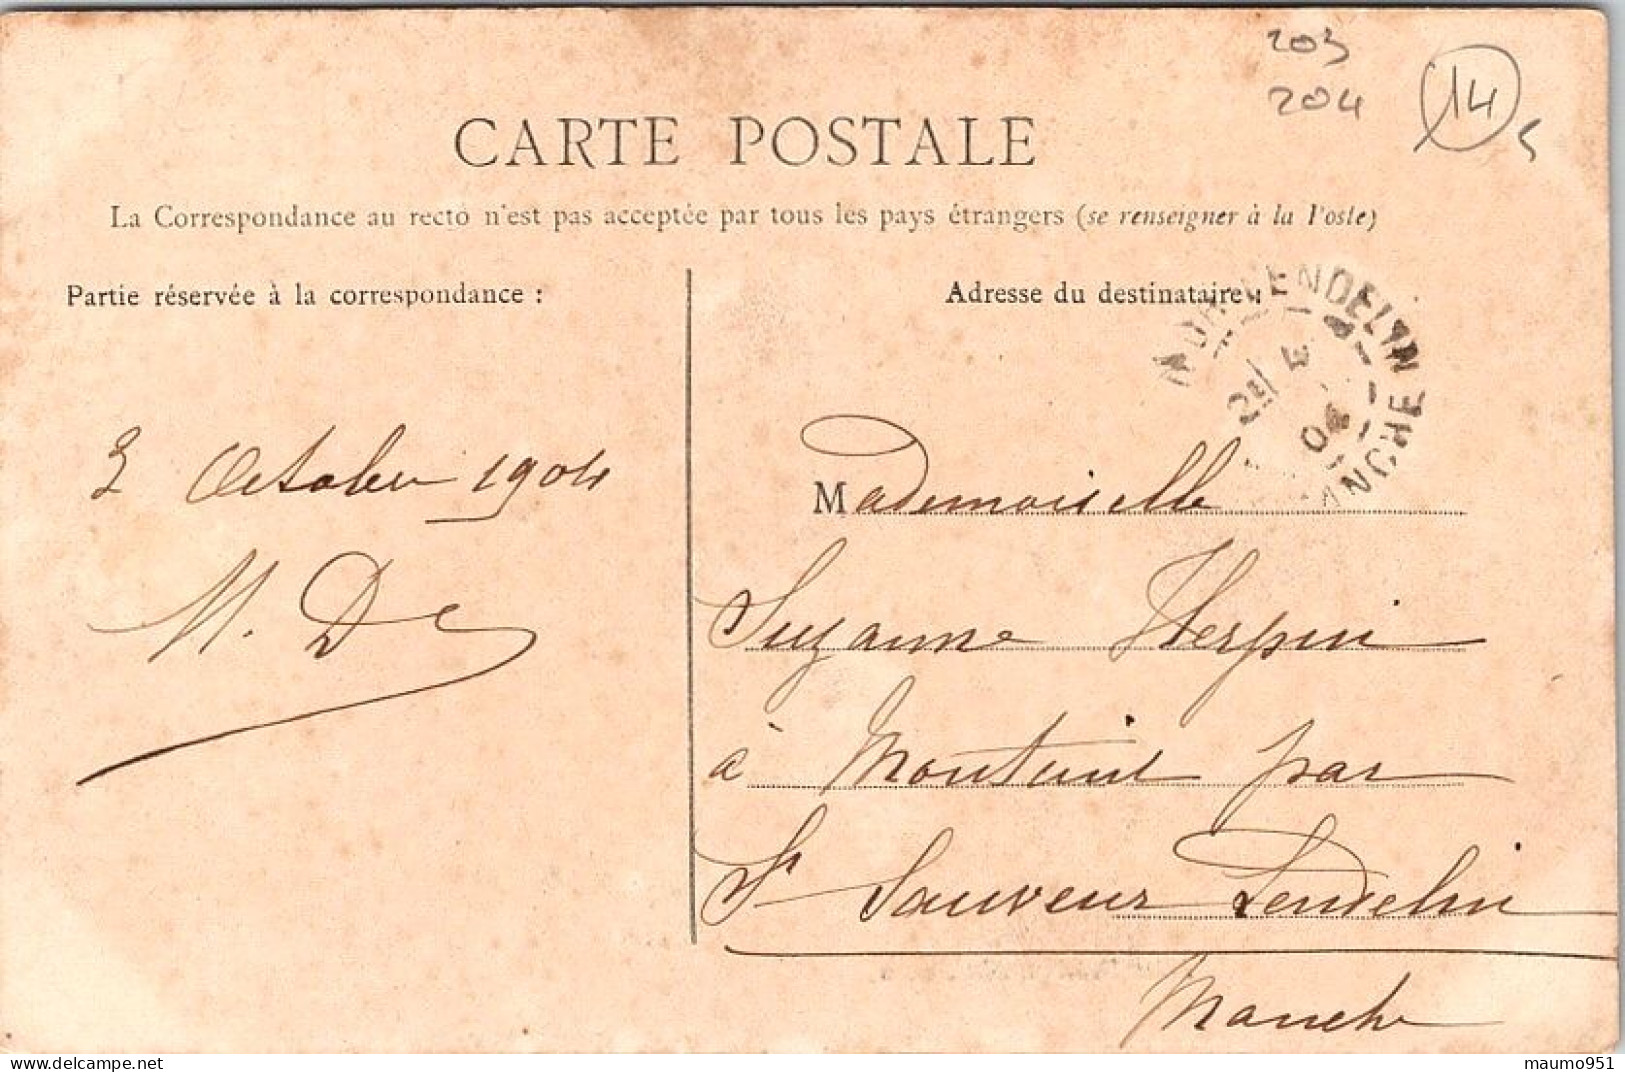 203
204
14
CARTE POSTALE
La Correspondance au recto n'est pas acceptée par tous les pays étrangers (se renseigner à la Poste)
Partie réservée à la correspondance :
Adresse du destinataire :
ENDELIN
MANCHE
04
3 October 1904
M. D
Mademoiselle
Suzanne Herpin
à Montuit par
St Sauveur Lendelin
Manche
maumo951